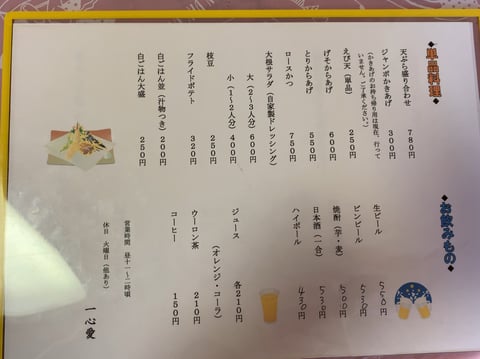 ◆単品料理◆
天ぷら盛り合わせ 780円
ジャンボかきあげ 300円
(かきあげのお持ち帰り用は現在、行って
いません。ご了承ください。)
えび天(単品) 250円
げそからあげ 600円
とりからあげ 550円
ロースかつ 750円
大根サラダ(自家製ドレッシング)
大(2~3人分) 600円
小(1~2人分) 400円
枝豆 250円
フライドポテト 320円
白ごはん並(汁物つき) 200円
白ごはん大盛 250円
◆お飲みもの◆
生ビール 550円
ビンビール 550円
焼酎(芋・麦) 500円
日本酒(一合) 530円
ハイボール 430円
ジュース 各210円
(オレンジ・コーラ)
ウーロン茶 210円
コーヒー 150円
営業時間 昼十一~二時頃
休日 火曜日(他あり)
一心愛